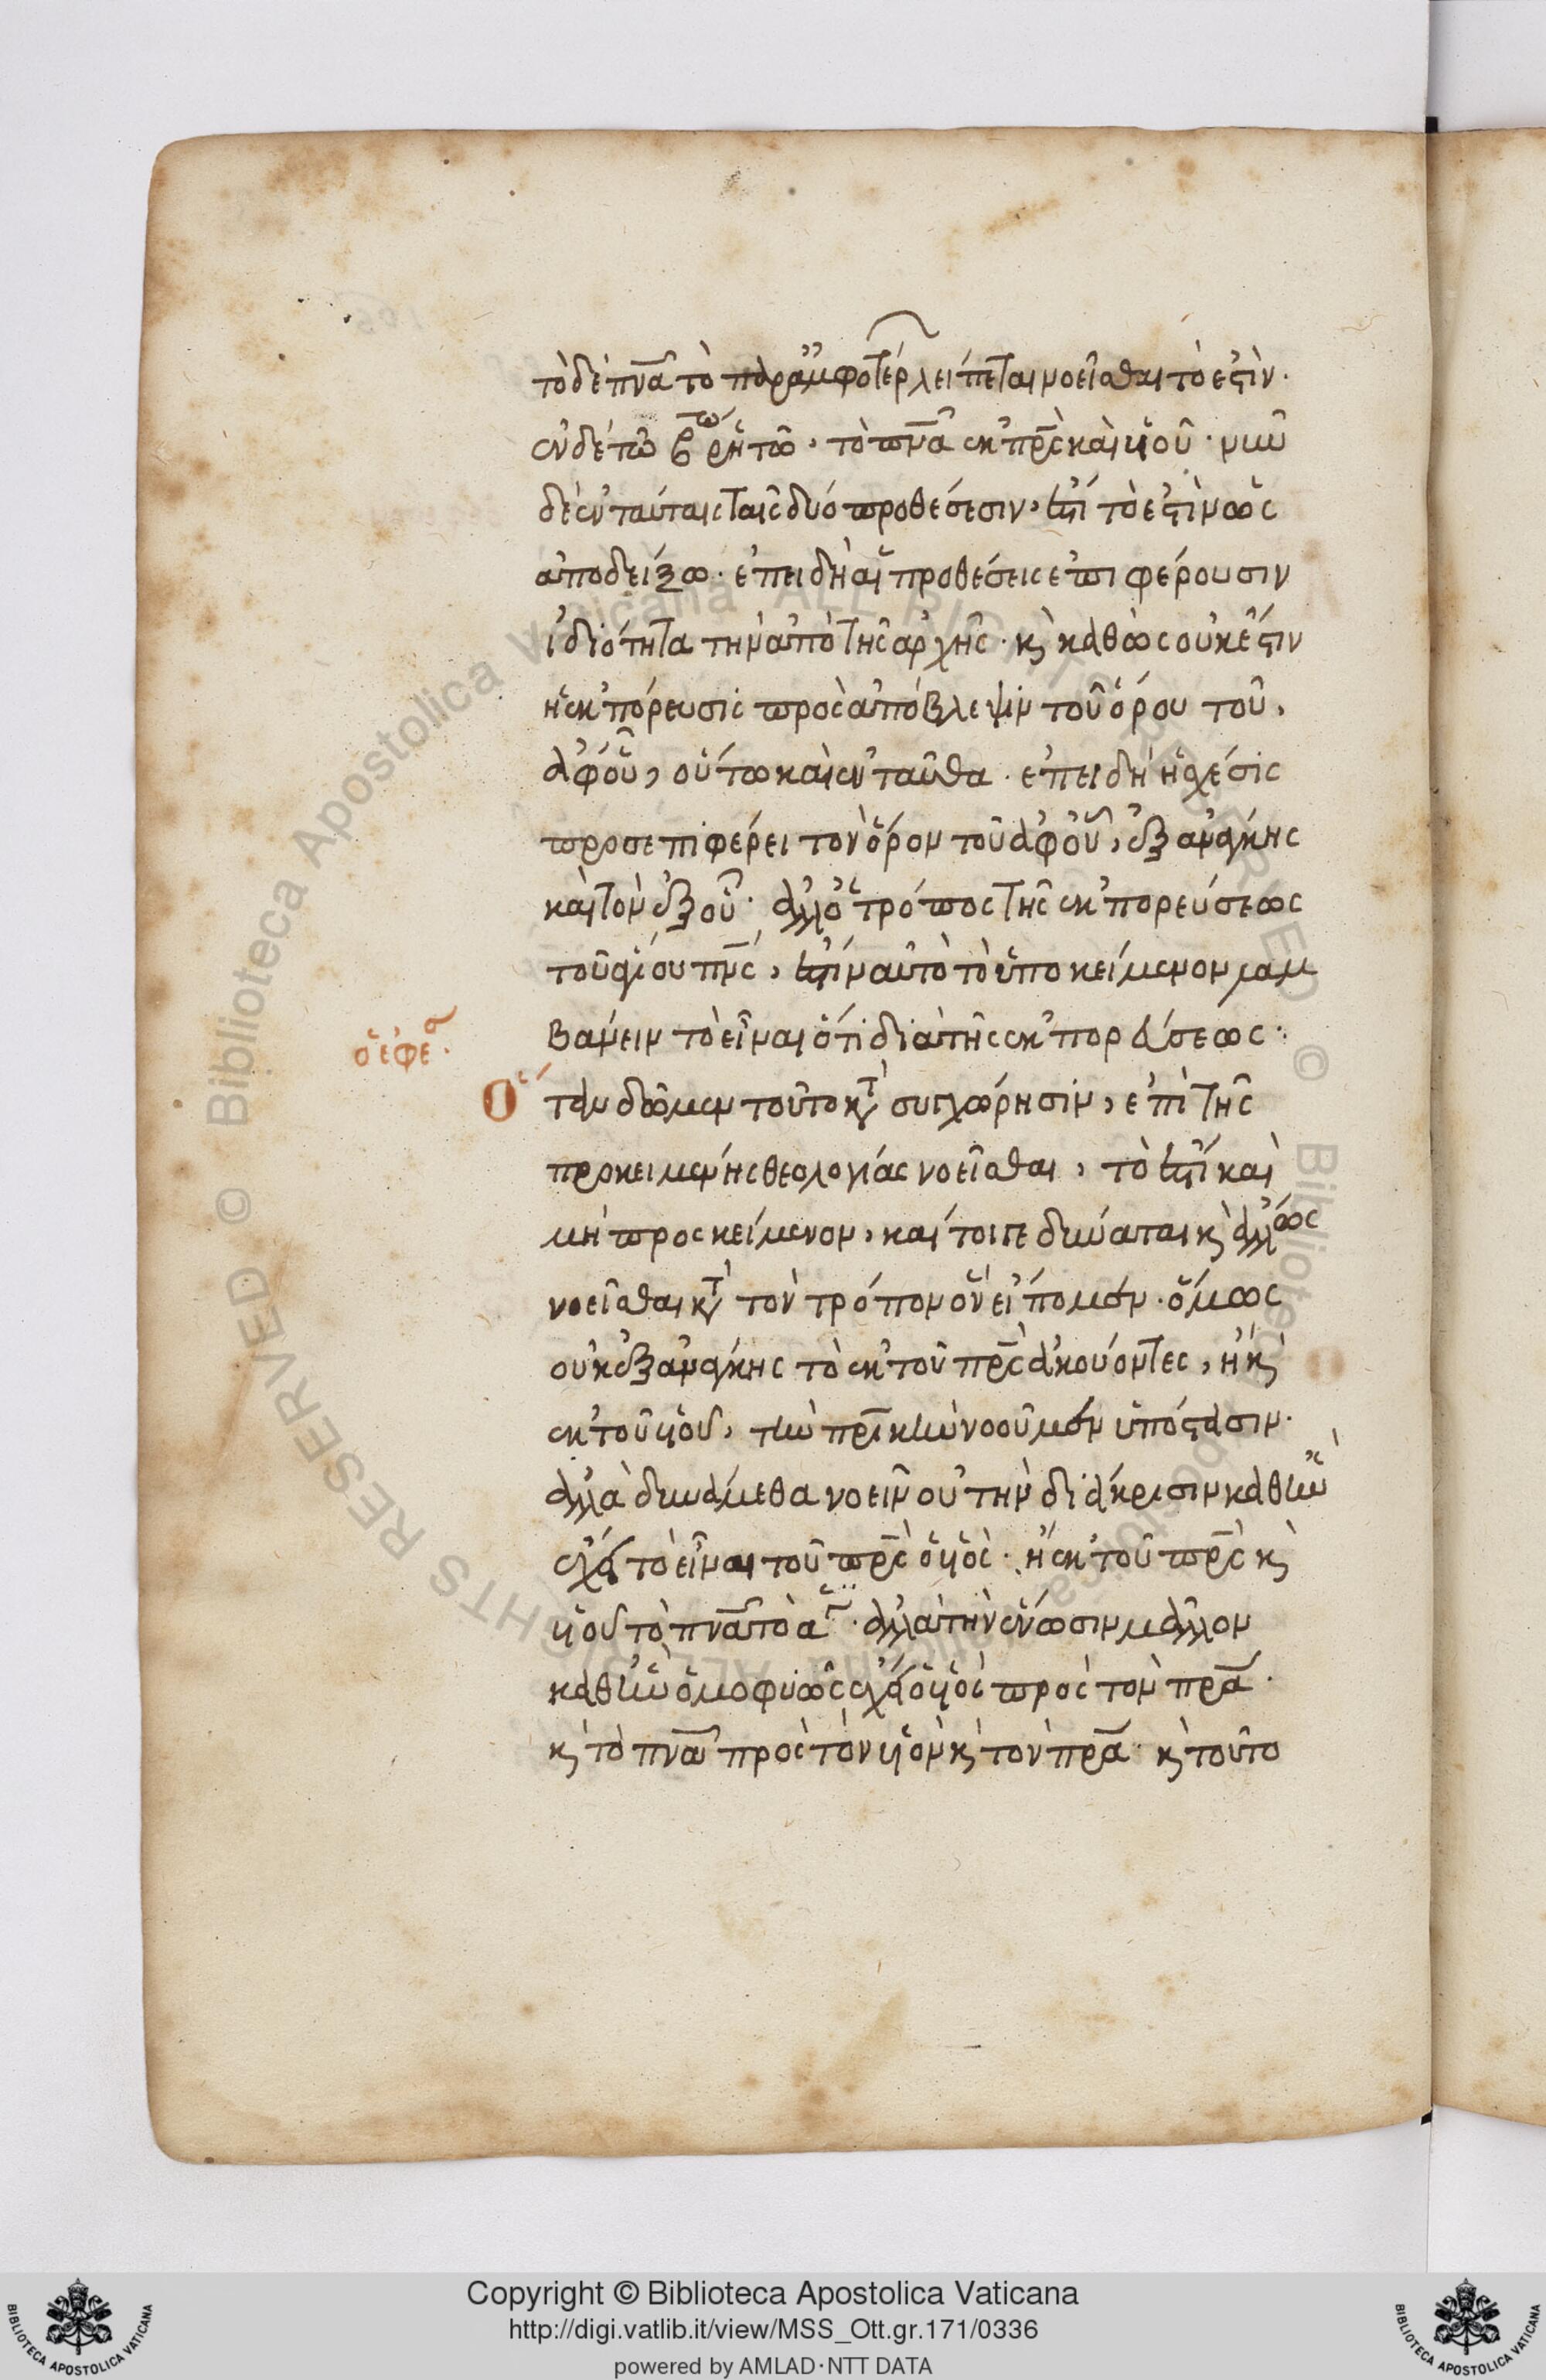 τὸ δὲ πνᾶ τὸ παρ' ἀμφοτέρ λείπεται νοεῖσθαι τὸ ἐστὶν·
ἐν δέ τῷ ῥητῷ, τὸ πνᾶ ἐκ πρς καὶ υἱοῦ· νῦν
δὲ ἐν ταύταις ταῖς δυὸ προθέσεσιν, ἐστί τὸ ἐστὶν ὡς
ἀποδείξω· ἐπειδὴ αἱ προθέσεις ἐπιφέρουσιν
ἰδιότητα τὴν ἀπὸ τῆς ἀρχῆς· κ καθὼς οὐκ ἔστιν
ἡ ἐκπόρευσις πρὸς ἀπόβλεψιν τοῦ ὅρου τοῦ,
ἀφ' οὗ, οὕτω καὶ ἐνταῦθα· ἐπειδὴ ἡ σχέσις
προσεπιφέρει τὸν ὅρον τοῦ ἀφ' οὗ, ἐξ ἀνάγκης
καὶ τὸν ἐξ οὗ· ἀλλ' ὁ τρόπος τῆς ἐκπορεύσεως
τοῦ ἁγίου πνς, ἐστίν αὐτὸ τὸ ὑποκείμενον λαμ
βάνειν τὸ εἶναι ὅτι διὰ τῆς ἐκπορεύσεως:
ὁ ἐφέ·
Ὅταν δῶμεν τοῦτο κτ συγχώρησιν, ἐπὶ τῆς
προκειμένης θεολογίας νοεῖσθαι, τὸ ἐστί καὶ
μὴ προσκείμενον, καίτοι γε δύναται κ ἄλλως
νοεῖσθαι κτ τὸν τρόπον ὃν εἴπομεν· ὅμως
οὐκ ἐξ ἀνάγκης τὸ ἐκ τοῦ πρς ἀκούοντες, ἢ κ
ἐκ τοῦ υἱοῦ, τὴν πρικὴν νοοῦμεν ὑπόστασιν·
ἀλλὰ δυνάμεθα νοεῖν οὐ τὴν διάκρισιν καθ' ἣν
ἔχει τὸ εἶναι τοῦ πρς ὁ υἱὸς· ἢ ἐκ τοῦ πρς κ
υἱοῦ τὸ πνᾶ τὸ ἅ· ἀλλὰ τὴν ἕνωσιν μᾶλλον
καθ' ἣν ὁμοφυῶς ἔχει ὁ υἱὸς πρὸς τὸν πρα·
κ τὸ πνᾶ πρὸς τὸν υἱὸν κ τὸν πρα· κ τοῦτο
Copyright © Biblioteca Apostolica Vaticana
http://digi.vatlib.it/view/MSS_Ott.gr.171/0336
powered by AMLAD·NTT DATA